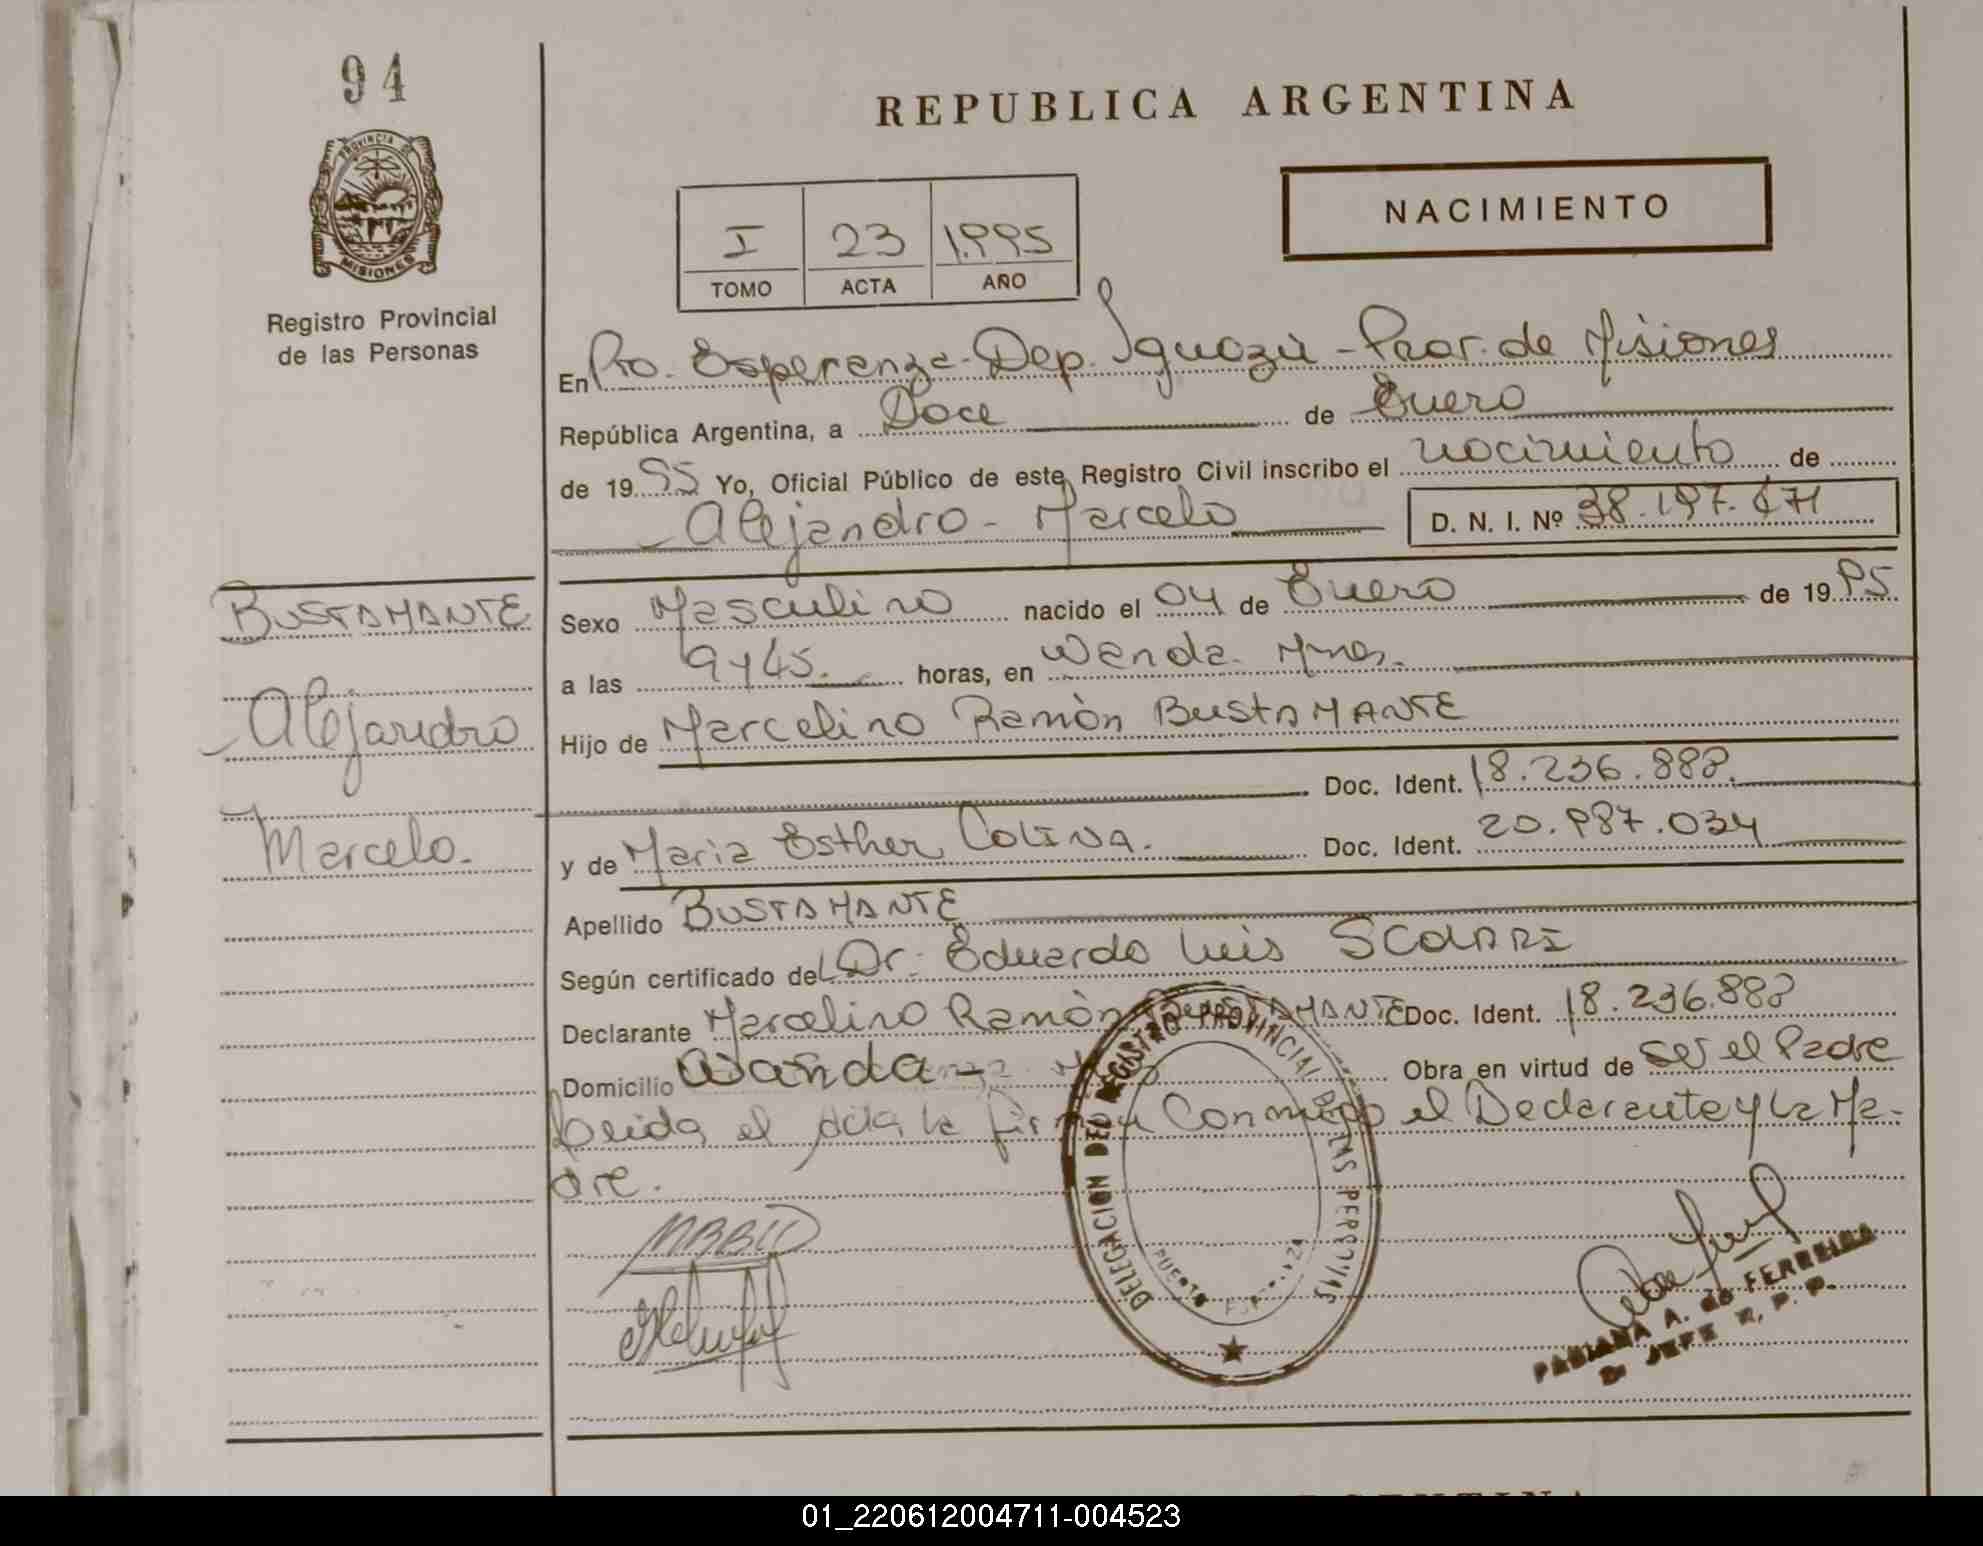 94
PROVINCIA DE
MISIONES
Registro Provincial
de las Personas
REPUBLICA ARGENTINA
NACIMIENTO
I 23 1.995
TOMO ACTA AÑO
En Pto. Esperanza - Dep. Iguazú - Prov. de Misiones
República Argentina, a Doce de Enero
de 1995 Yo, Oficial Público de este Registro Civil inscribo el nacimiento de
Alejandro - Marcelo D. N. I. Nº 38.197.671
BUSTAMANTE
Alejandro
Marcelo.
Sexo Masculino nacido el 04 de Enero de 1995
a las 9 y 45. horas, en Wanda. Mnes.
Hijo de Marcelino Ramòn BUSTAMANTE
Doc. Ident. 18.236.888.
y de Maria Esther COLINA. Doc. Ident. 20.987.034
Apellido BUSTAMANTE
Según certificado del Dr. Eduardo Luis SCOLARI
Declarante Marcelino Ramòn BUSTAMANTE Doc. Ident. 18.236.888
Domicilio Wanda - Obra en virtud de ser el Padre
Leida el Acta la firman Conmigo el Declarante y la Ma-
dre.
DELEGACION DEL REGISTRO PROVINCIAL DE LAS PERSONAS
PUERTO
FABIANA A. de FERREIRA
JEFE R. P. P.
01_220612004711-004523